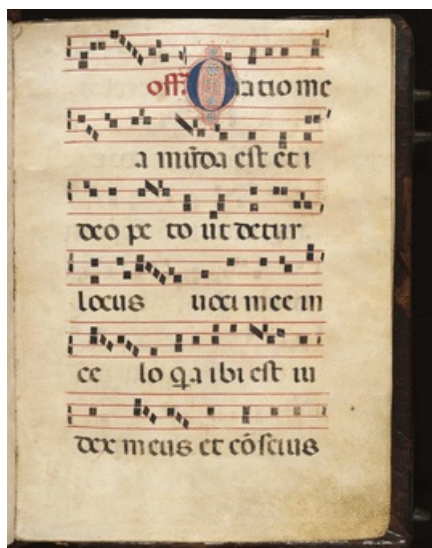 off. Oratio me
a mūda est et i
deo pe to ut detur
locus uoci mee in
ce lo q̄a ibi est iu
dex meus et cōscius